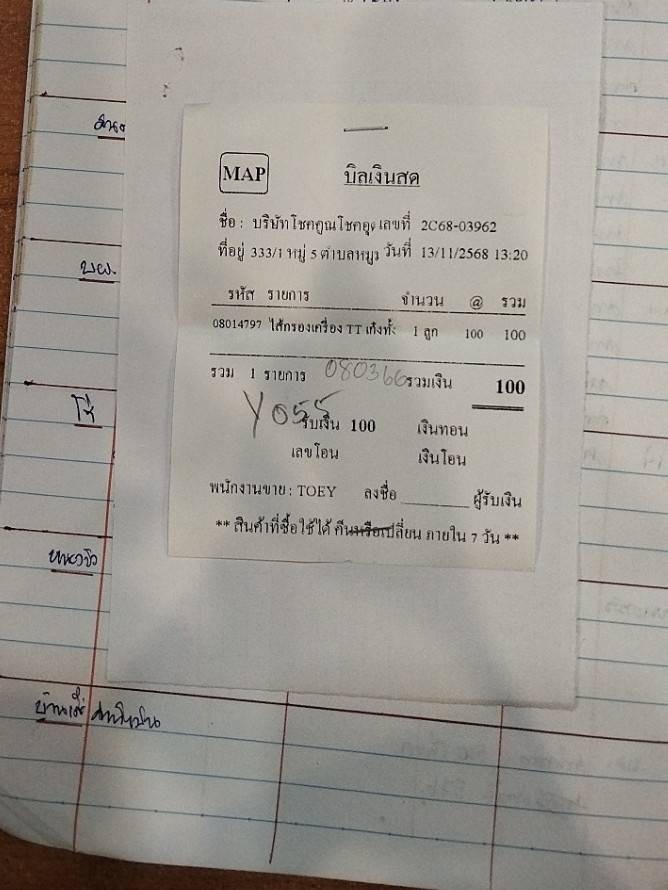 MAP
บิลเงินสด
ชื่อ : บริษัทโชคคูณโชคอุง เลขที่ 2C68-03962
ที่อยู่ 333/1 หมู่ 5 ตำบลหมูง วันที่ 13/11/2568 13:20
รหัส รายการ จำนวน @ รวม
08014797 ไส้กรองเครื่อง TT เก๋งทั้ง 1 ลูก 100 100
รวม 1 รายการ 080366 รวมเงิน 100
Y055
รับเงิน 100 เงินทอน
เลขโอน เงินโอน
พนักงานขาย : TOEY ลงชื่อ ________ ผู้รับเงิน
** สินค้าที่ซื้อใช้ได้ คืนหรือเปลี่ยน ภายใน 7 วัน **